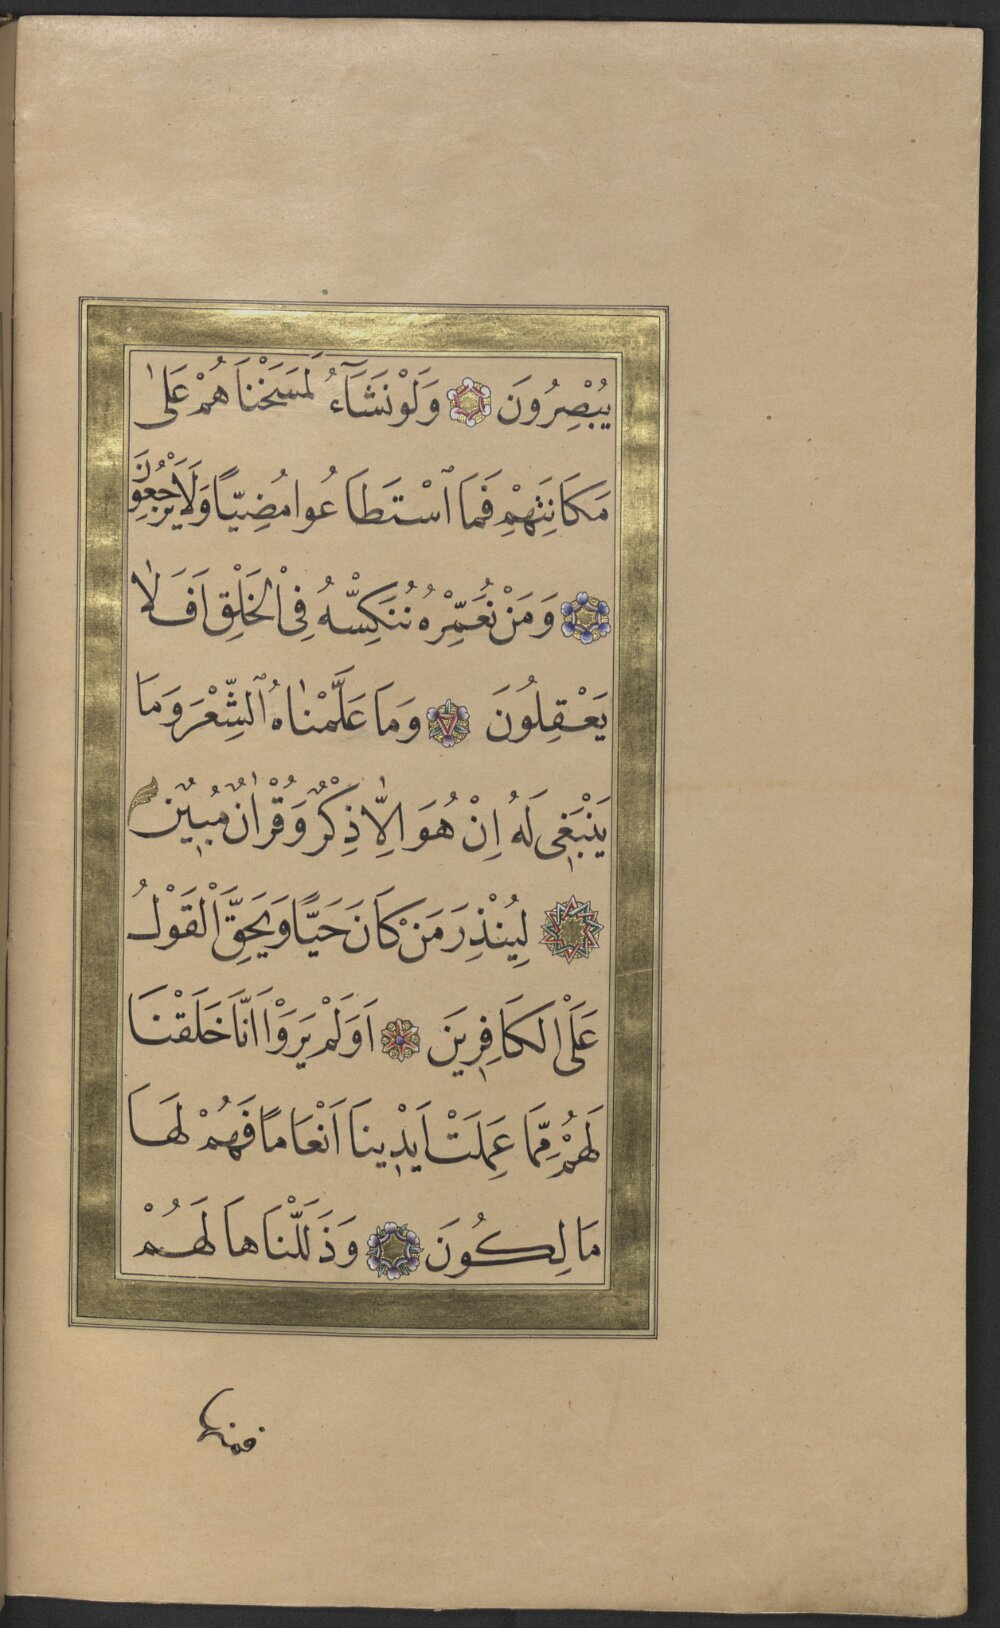 يُبْصِرُونَ وَلَوْ نَشَآءُ لَمَسَخْنَا هُمْ عَلٰى
مَكَانَتِهِمْ فَمَا ٱسْتَطَاعُوا مُضِيًّا وَلَا يَرْجِعُونَ
وَمَنْ نُعَمِّرْهُ نُنَكِّسْهُ فِى الْخَلْقِ اَفَلَا
يَعْقِلُونَ وَمَا عَلَّمْنَاهُ ٱلشِّعْرَ وَمَا
يَنْبَغِى لَهُ اِنْ هُوَ اِلَّا ذِكْرٌ وَقُرْاٰنٌ مُبِينٌ
لِيُنْذِرَ مَنْ كَانَ حَيًّا وَيَحِقَّ الْقَوْلُ
عَلَى الْكَافِرِينَ اَوَلَمْ يَرَوْا اَنَّا خَلَقْنَا
لَهُمْ مِمَّا عَمِلَتْ اَيْدِينَا اَنْعَامًا فَهُمْ لَهَا
مَالِكُونَ وَذَلَّلْنَاهَا لَهُمْ
فمنها